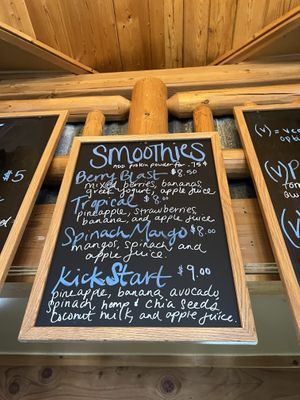 Smoothies
Add protein powder for .75¢
Berry Blast $8.50
mixed berries, bananas,
greek yogurt, apple juice
Tropical $8.00
pineapple, strawberries,
banana, and apple juice
Spinach Mango $8.00
mangos, spinach, and
apple juice.
KickStart $9.00
pineapple, banana, avocado,
spinach, hemp & chia seeds,
coconut milk, and apple juice.
$5
(V) = ve
opti
(V)P
for
(V)